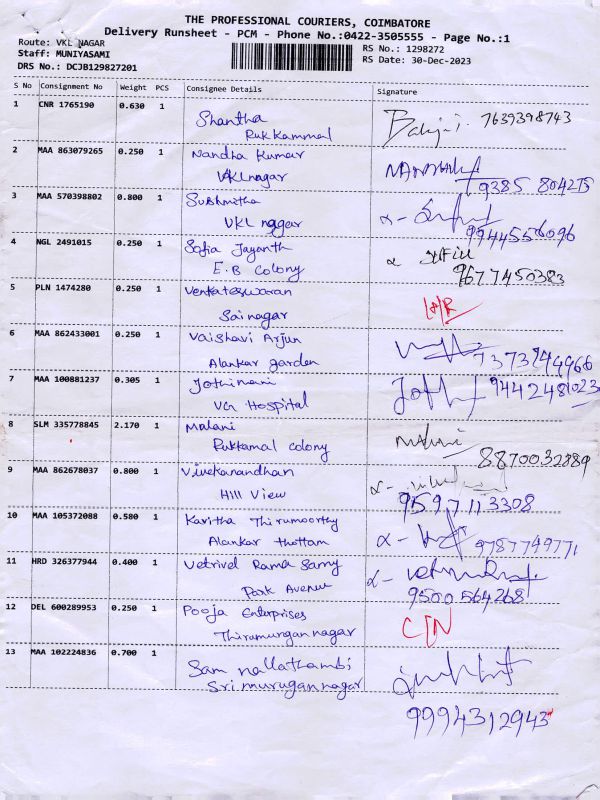 THE PROFESSIONAL COURIERS, COIMBATORE
Delivery Runsheet - PCM - Phone No.:0422-3505555 - Page No.:1
Route: VKL NAGAR
Staff: MUNIYASAMI
DRS No.: DCJB129827201
RS No.: 1298272
RS Date: 30-Dec-2023
S No Consignment No Weight PCS Consignee Details Signature
1 CNR 1765190 0.630 1 Shantha
Rukkammal
7639398743
2 MAA 863079265 0.250 1 Nandha Kumar
VKLnagar
9385 804275
3 MAA 570398802 0.800 1 Sushmitha
VKL nagar
9944556096
4 NGL 2491015 0.250 1 Sofia Jayanth
E.B Colony
9677450383
5 PLN 1474280 0.250 1 Venkateswaran
Sainagar
6 MAA 862433001 0.250 1 Vaishavi Arjun
Alankar garden
7 MAA 100881237 0.305 1 Jothimani
VG Hospital
8 SLM 335778845 2.170 1 Malani
Rukkamal Colony
Malani
9 MAA 862678037 0.800 1 Vivekanandhan
Hill View
9597113308
10 MAA 105372088 0.580 1 Kavitha Thirumoorthy
Alankar thottam
9787749771
11 HRD 326377944 0.400 1 Vetrivel Rama Samy
Park Avenue
9500564268
12 DEL 600289953 0.250 1 Pooja Enterprises
Thirumurgan nagar
13 MAA 102224836 0.700 1 Sam nallathambi
Sri murugan nagar
9994312943